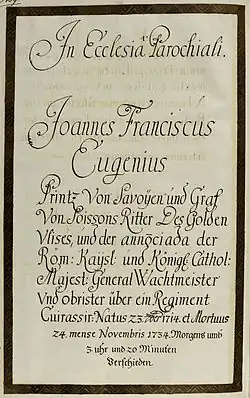 In Ecclesia Parochiali.
Joannes Franciscus
Eugenius
Printz Von Savoÿen und Graf
Von Soissons Ritter Des Golden
Vlises, und der annõciada der
Röm: Kaÿsl: und Königl: Cathol:
Majest: General Wachtmeister
Vnd obrister über ein Regiment
Cuirassir: Natus 23. 1714. et Mortuus
24. mense Novembris 1734. Morgens umb
3 uhr und 20 Minuten
Verschieden.